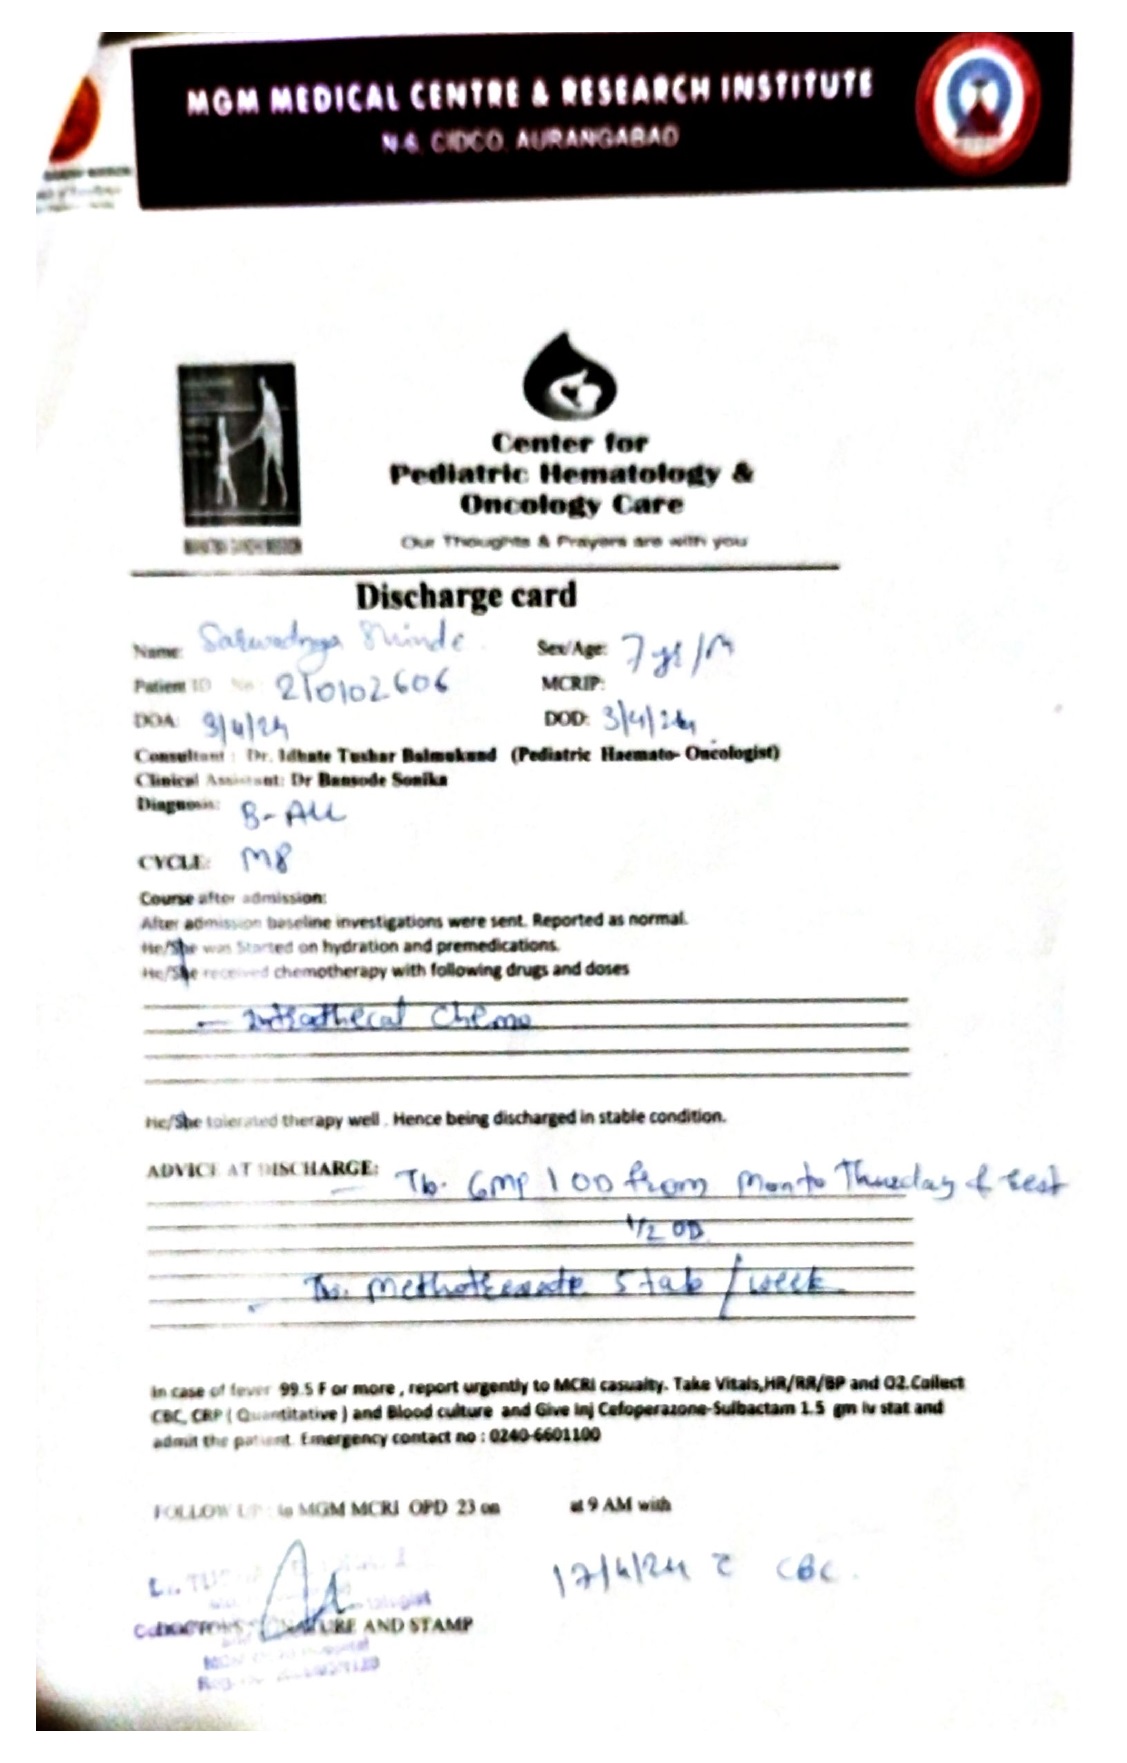 MGM MEDICAL CENTRE & RESEARCH INSTITUTE
N-6, CIDCO, AURANGABAD
Center for
Pediatric Hematology &
Oncology Care
Our Thoughts & Prayers are with you
Discharge card
Name: Shinde Sex/Age: 7 yr/M
Patient ID No 210102606 MCRIP:
DOA: 3/4/24 DOD: 3/4/24
Consultant : Dr. Idhate Tushar Balmukund (Pediatric Haemato- Oncologist)
Clinical Assistant: Dr Bansode Sonika
Diagnosis: B-ALL
CYCLE: M8
Course after admission:
After admission baseline investigations were sent. Reported as normal.
He/She was Started on hydration and premedications.
He/She received chemotherapy with following drugs and doses
- Intrathecal Chemo
He/She tolerated therapy well . Hence being discharged in stable condition.
ADVICE AT DISCHARGE: Tb. 6MP 1 OD from Mon to Thursday & rest
1/2 OD
- Tb. Methotrexate 5 tab / week
In case of fever 99.5 F or more , report urgently to MCRI casualty. Take Vitals,HR/RR/BP and O2.Collect
CBC, CRP ( Quantitative ) and Blood culture and Give Inj Cefoperazone-Sulbactam 1.5 gm iv stat and
admit the patient. Emergency contact no : 0240-6601100
FOLLOW UP : to MGM MCRI OPD 23 on at 9 AM with
17/4/24 c̄ CBC.
SIGNATURE AND STAMP